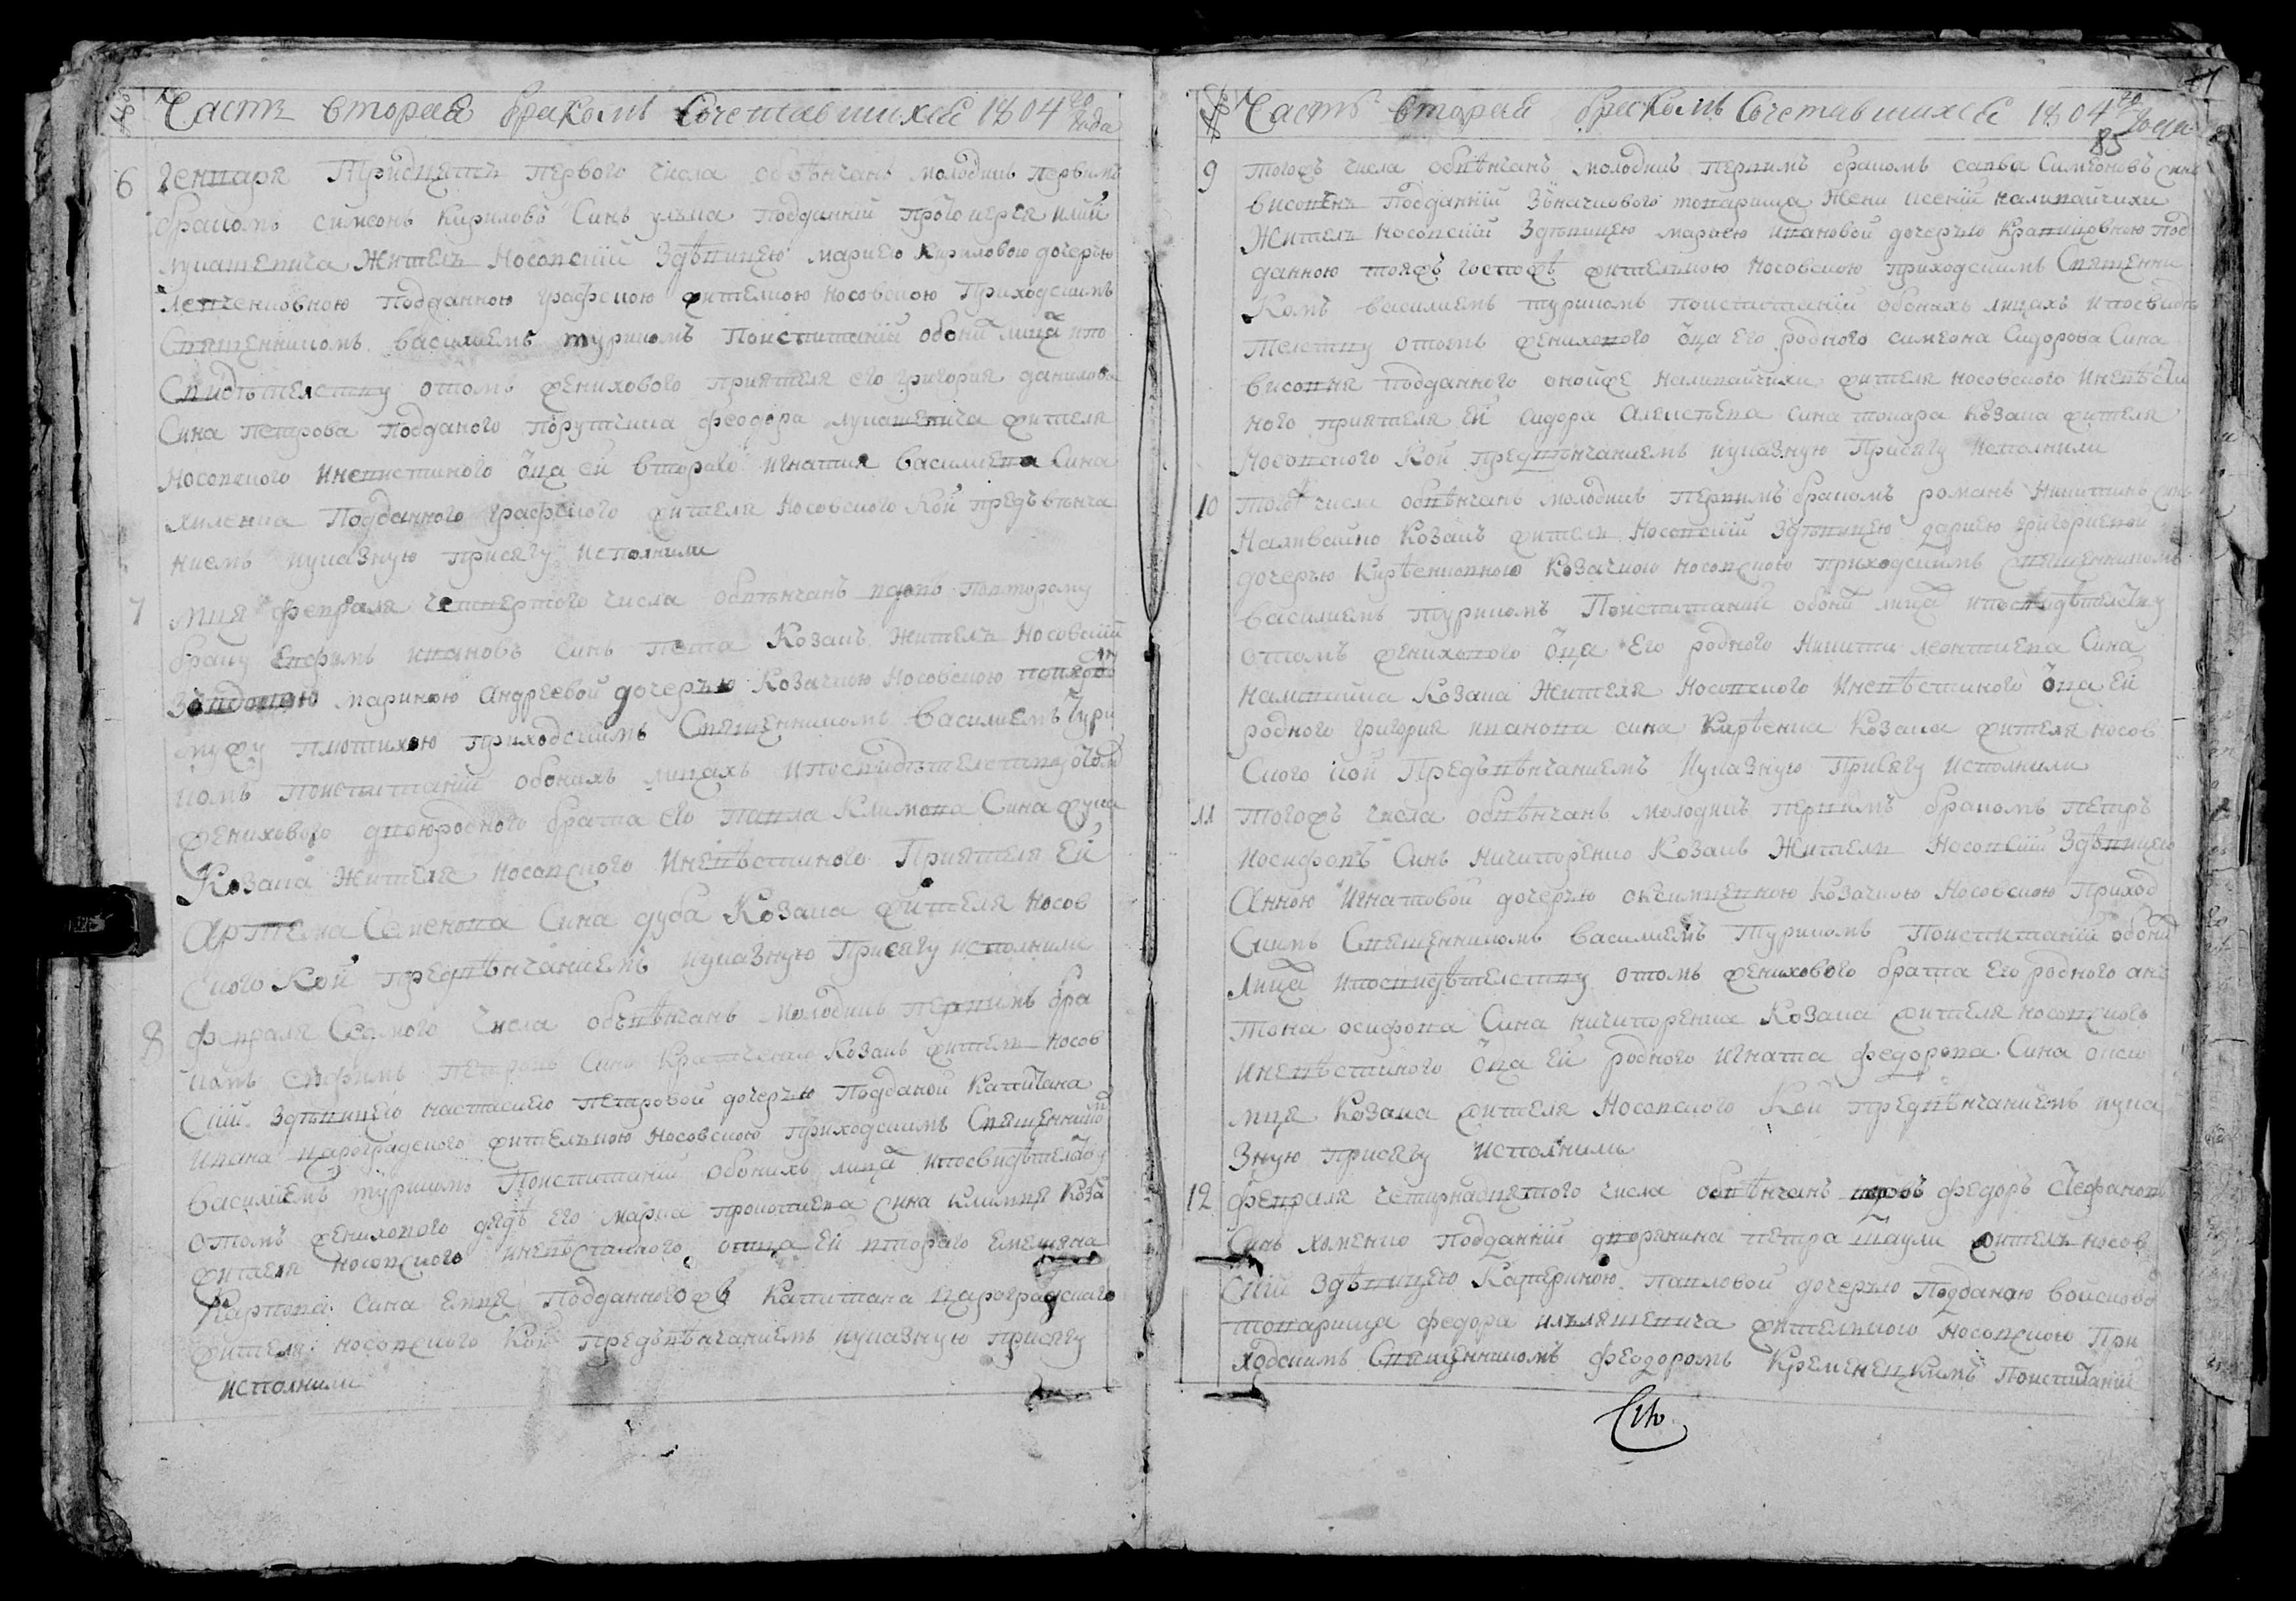 Часть вторая браком сочетавшихся 1804го года
6 Генваря тридцять первого числа обвѣнчанъ молодикъ первимъ
бракомъ симеонъ Кириловъ Синъ улма подданній протоиерея илии
лукашевича Жителъ Носовскій Здѣвицею мариею Кириловою дочерью
подданною графскою жителкою носовскою Приходскимъ
Священникомъ василиемъ турикомъ Повспитаній обоихъ лицъ ипо
Свидѣтелству отомъ женихового приятеля его григория данилова
Сина петрова подданого порутчика феодора лукашевича жителя
Носовского иневистиного оца ей второго игнатия василиева Сина
Подданного графского жителя Носовского Кои предъ вѣнча
ниемъ иуказную присягу исполнили
7 мця февраля четвертого числа обвѣнчанъ вдовъ повторому
браку Евфимъ ивановъ Синъ Козакъ жителъ Носовскій
Звдовою мариною андреевой дочерью Козачкою Носовскою
приходскимъ Священникомъ василиемъ тури
комъ повспитаній обоихъ лицахъ ипосвидѣтелству отомъ
женихового двоюродного брата его павла Климова Сина
Козака Жителя носовского иневѣстиного Приятеля ей
Артема Семенова Сина дуба Козака жителя Носов
ского Кои предвѣнчаниемъ иуказную присягу исполнили
8 февраля Седмого числа объвѣнчанъ молодикъ первимъ бра
комъ евфимъ петровъ Синъ Кравченко Козакъ жителъ носов
скій Здѣвицею настасиею петровой дочерью Подданой Капитана
ивана цароградского жителъкою носовскою приходскимъ Священникомъ
василиемъ турикомъ Повспитаній обоихъ лицъ ипосвидѣтелству
отомъ женихового дядѣ его марка прокопиева сина Коза
жителя носовского иневѣстиного отца ей второго емеляна
Карпова Сина Подданого жъ Капитана цароградского
жителя носовского Кои предъвѣнчаниемъ иуказную присягу
исполнили
Часть вторая браком сочетавшихся 1804го года
85
9 тогожъ числа обвѣнчанъ молодикъ первимъ бракомъ сава Симеоновъ синъ
висоцкий подданній Значкового товариша Жени
Жителъ носовскій Здѣвицею мариею ивановой дочерью Кравцовною под
данною тояжъ госпожѣ жителкою носовскою приходскимъ Священни
Комъ василиемъ турикомъ повспитаній обоихъ лицахъ ипосвидѣ
телству отомъ женихового оца его родного симеона Сидорова Сина
подданного онойже жителя носовского иневѣсти
ного приятеля ей сидора Алексѣева сина токара Козака жителя
носовского Кои предвѣнчаниемъ иуказную Присягу исполнили
10 тогожъ числа обвѣнчанъ молодикъ первимъ бракомъ романъ Никитинъ синъ
Наливайко Козакъ жителъ Носовскій Здѣвицею дариею григориевой
дочерью Кирѣенковною Козачкою носовскою приходскимъ Священникомъ
василиемъ турикомъ Повспитаній обоихъ лицъ ипосвидѣтелству
отомъ женихового оца Его родного Никити леонтиева Сина
наливайка Козака Жителя носовского иневѣстиного оца ей
родного григория иванова сина Кирѣенка Козака жителя носов
ского кои Предъвѣнчаниемъ иуказную Присягу исполнили
11 тогожъ числа обвѣнчанъ молодикъ первимъ бракомъ петръ
иосифовъ Синъ ничипоренко Козакъ Жителъ Носовскій Здѣвицею
Анною Игнатовой дочерью Козачкою Носовскою Приход
скимъ Священникомъ василиемъ Турикомъ Повспитаній обоихъ
лицъ ипосвидѣтелству отомъ женихового брата его родного ан
тона осифова Сина ничипоренка Козака жителя носовского
иневѣстиного оца ей родного игната федорова Сина
Козака жителя Носовского Кои предвѣнчаниемъ иука
зную присягу исполнили
12 февраля четирнадцятого числа обвѣнчанъ вдовъ федоръ Стефановъ
Синъ хоменко подданній дворянина петра жителъ носов
скій Здѣвицею Катериною павловой дочерью Подданою воискового
товарища федора жителъкою Носовскою При
ходскимъ Священникомъ феодоромъ Кременецкимъ Повспитаній